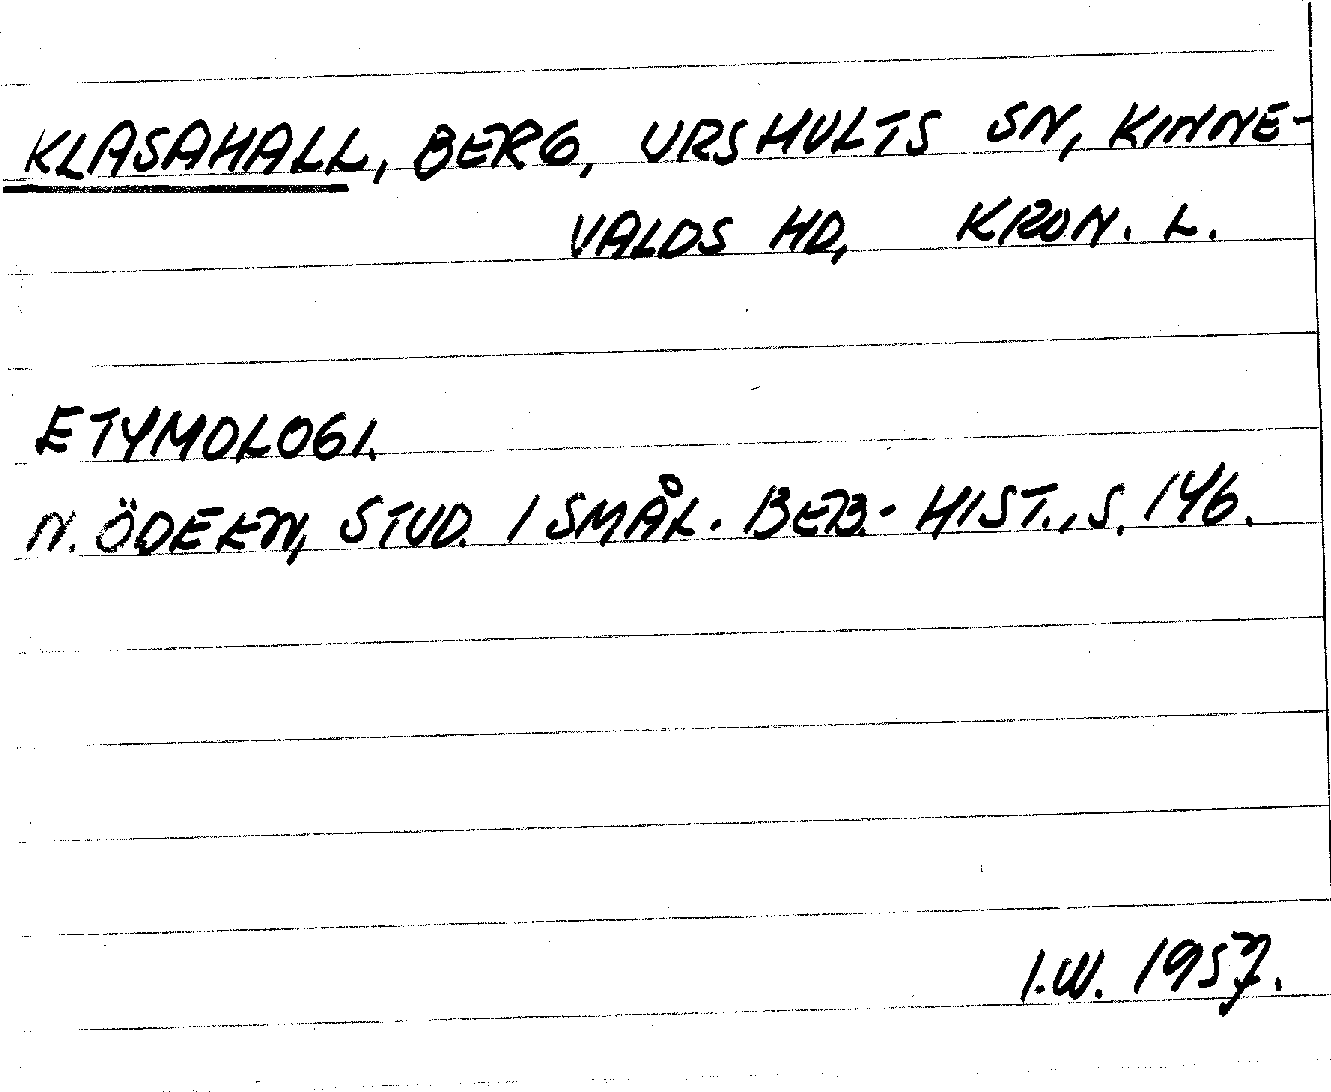 KLASAHALL, BERG, URSHULTS SN, KINNE-
VALDS HD, KRON. L.
ETYMOLOGI.
N. ÖDEEN, STUD. I SMÅL. BEB.- HIST., S. 146.
I.W. 1957.